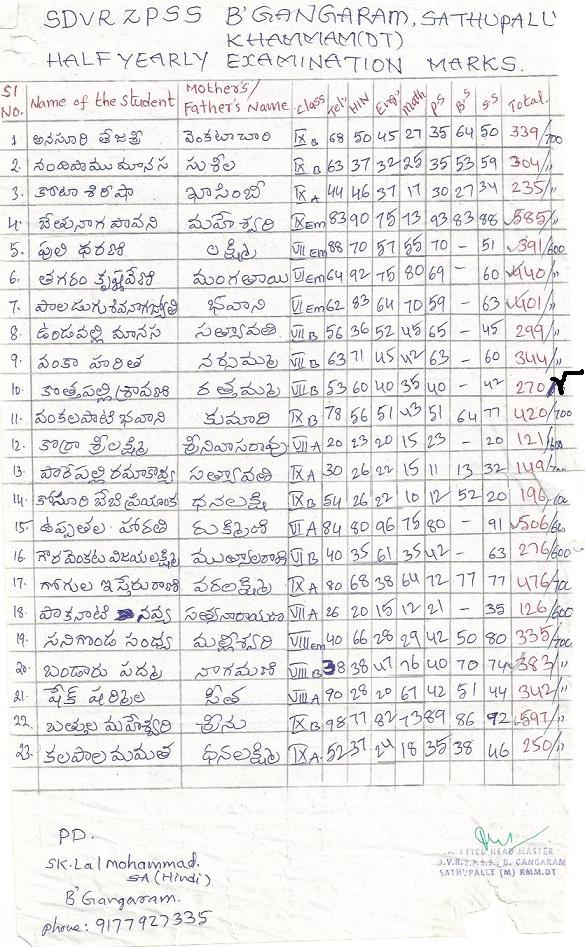 SDVR ZPSS B'GANGARAM, SATHUPALLI
KHAMMAM(DT)
HALF YEARLY EXAMINATION MARKS.
Sl No. Name of the student Mother's/ Father's Name Class Tel HIN Eng Math P.S B.S S.S Total.
1 అనసూరి తేజశ్రీ వెంకటాచారి IX B 68 50 45 27 35 64 50 339/700
2. నందిపాము మానస సుశీల IX B 63 37 32 25 35 53 59 304/"
3. కోటా శిరీషా ఖాసింబీ IX A 44 46 37 17 30 27 34 235/"
4. చేతునాగ పావని మహేశ్వరి IX Em 83 90 75 73 93 83 88 585/"
5. పులి ధరణి లక్ష్మి VII Em 88 70 57 55 70 - 51 391/600
6. తగరం కృష్ణవేణి మంగతాయి VI Em 64 92 75 80 69 - 60 440/"
7. పాలడుగు శివనాగజ్యోతి భవాని VI Em 62 83 64 70 59 - 63 401/"
8. ఉండవల్లి మానస సత్యావతి VII B 56 36 52 45 65 - 45 299/"
9. వంకా హరిత నర్సమ్మ VII B 63 71 45 42 63 - 60 344/"
10. కొత్తపల్లి శ్రావణి రత్తమ్మ VII B 53 60 40 35 40 - 42 270
11. వంకలపాటి భవాని కుమారి IX B 78 56 51 43 51 64 77 420/700
12. కార్రా శ్రీలక్ష్మి శ్రీనివాసరావు VII A 20 23 20 15 23 - 20 121/600
13. పారేపల్లి రమాకావ్య సత్యావతి IX A 30 26 22 15 11 13 32 149/700
14. కోసూరి బేబి ప్రియాంక ధనలక్ష్మి IX B 54 26 22 10 12 52 20 196/700
15. ఉప్పతల హారతి రుక్మిణి VI A 84 80 96 75 80 - 91 506/600
16. గౌర వెంకట విజయలక్ష్మి ముత్యాలరాణి VI B 40 35 61 35 42 - 63 276/600
17. గోగుల ఇస్తేరురాణి వరలక్ష్మి IX A 80 68 38 64 72 77 77 476/700
18. పాకనాటి నవ్య సత్యనారాయణ VII A 26 20 15 12 21 - 35 126/600
19. సనిగొండ సంధ్య మల్లీశ్వరి VIII Em 40 66 28 29 42 50 80 335/700
20. బండారు పద్మ నాగమణి VIII B 38 38 47 76 40 70 74 383/"
21. షేక్ షర్మిల సీత VIII A 90 28 20 67 42 51 44 342/"
22. బత్తుల మహేశ్వరి శ్రీను IX B 98 77 82 73 89 86 92 597/"
23. కలపాల మమత ధనలక్ష్మి IX A 52 37 24 18 35 38 46 250/"
PD.
SK. Lal mohammad.
SA (Hindi)
B'Gangaram.
phone: 9177927335
HEAD MASTER
D.V.R.Z.P.S.S., B. GANGARAM
SATHUPALLY (M) KMM.DT